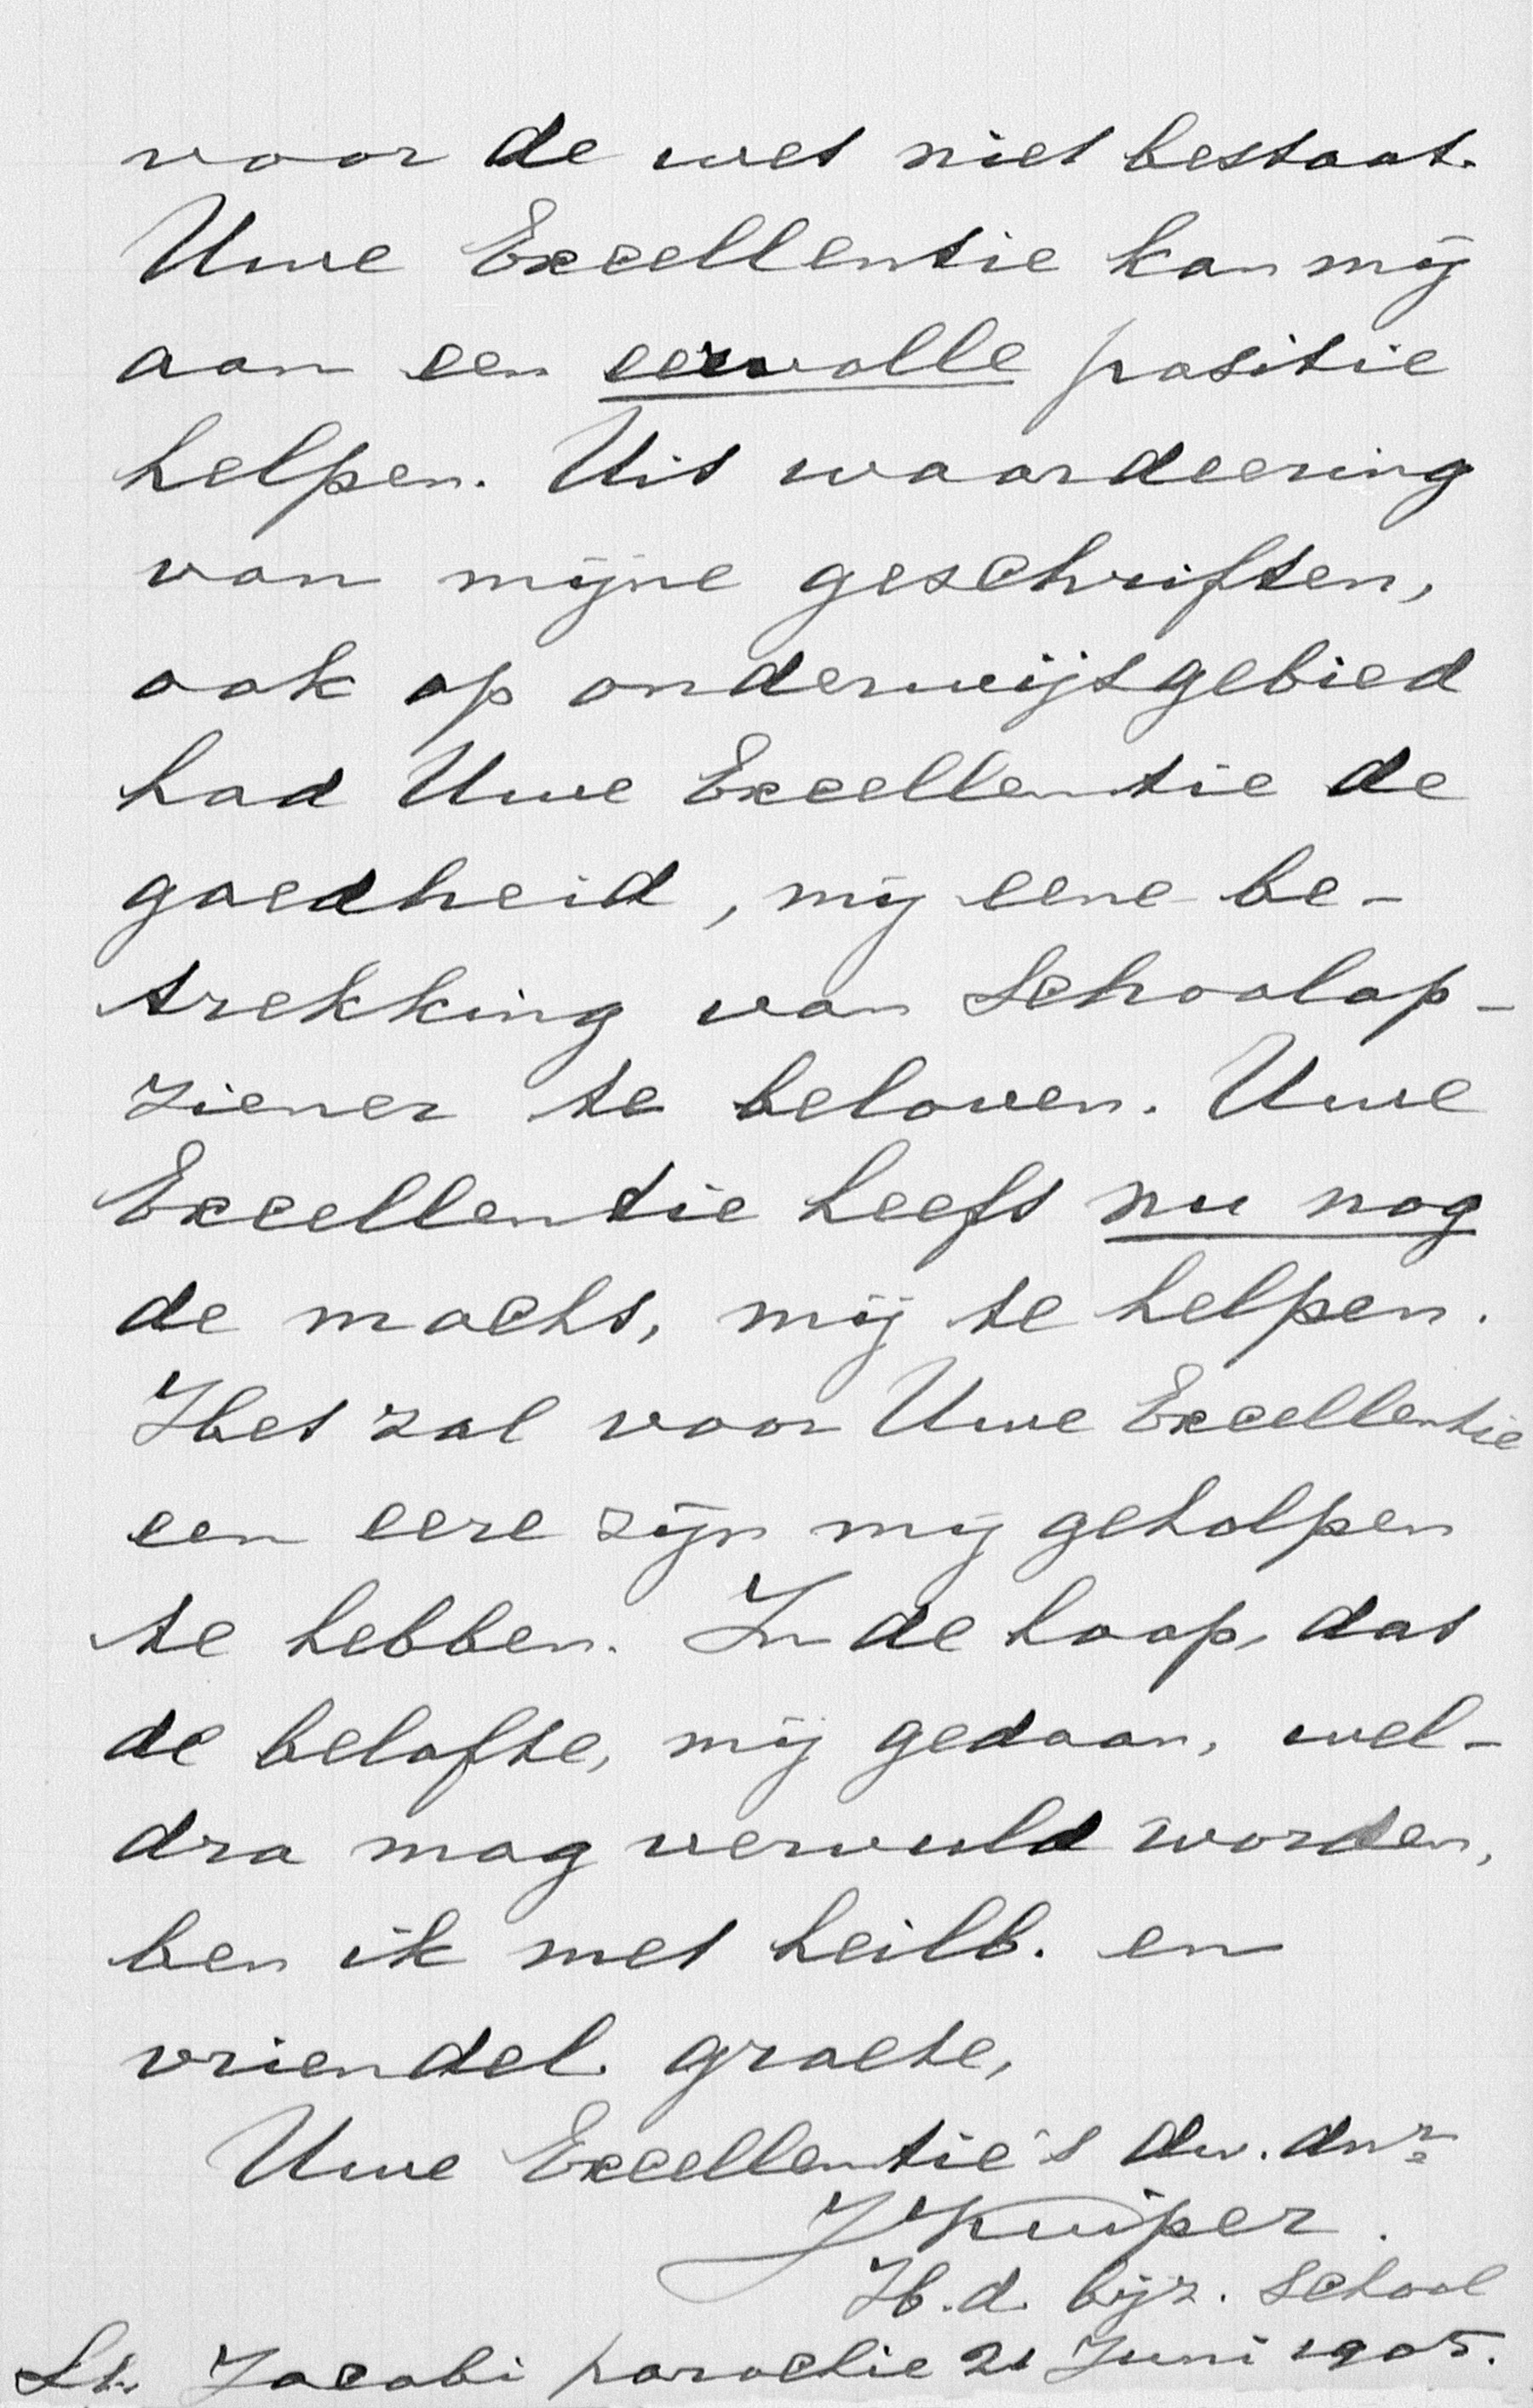 voor de wet niet bestaat.
Uwe Excellentie kan mij
aan een eervolle positie
helpen. Uit waardeering
van mijne geschriften,
ook op onderwijsgebied
had Uwe Excellentie de
goedheid, mij eene be-
trekking van Schoolop-
ziener te beloven. Uwe
Excellentie heeft nu nog
de macht, mij te helpen.
Het zal voor Uwe Excellentie
een eere zijn mij geholpen
te hebben. In de hoop, dat
de belofte, mij gedaan, wel-
dra mag vervuld worden,
ben ik met heilb. en
vriendel. groete,
Uwe Excellentie's dw. dnr
J Kuiper.
H. d. bijz. School
St. Jacobi parochie 21 Juni 1905.